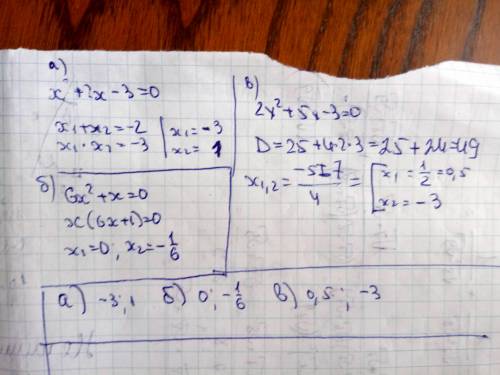 а)
x² + 2x - 3 = 0
x₁ + x₂ = -2 | x₁ = -3
x₁ · x₂ = -3 | x₂ = 1
б) 6x² + x = 0
x(6x+1) = 0
x₁ = 0; x₂ = -1/6
в)
2x² + 5x - 3 = 0
D = 25 + 4·2·3 = 25 + 24 = 49
x₁,₂ = (-5±7)/4 = [x₁ = 1/2 = 0,5
x₂ = -3
а) -3; 1 б) 0; -1/6 в) 0,5; -3